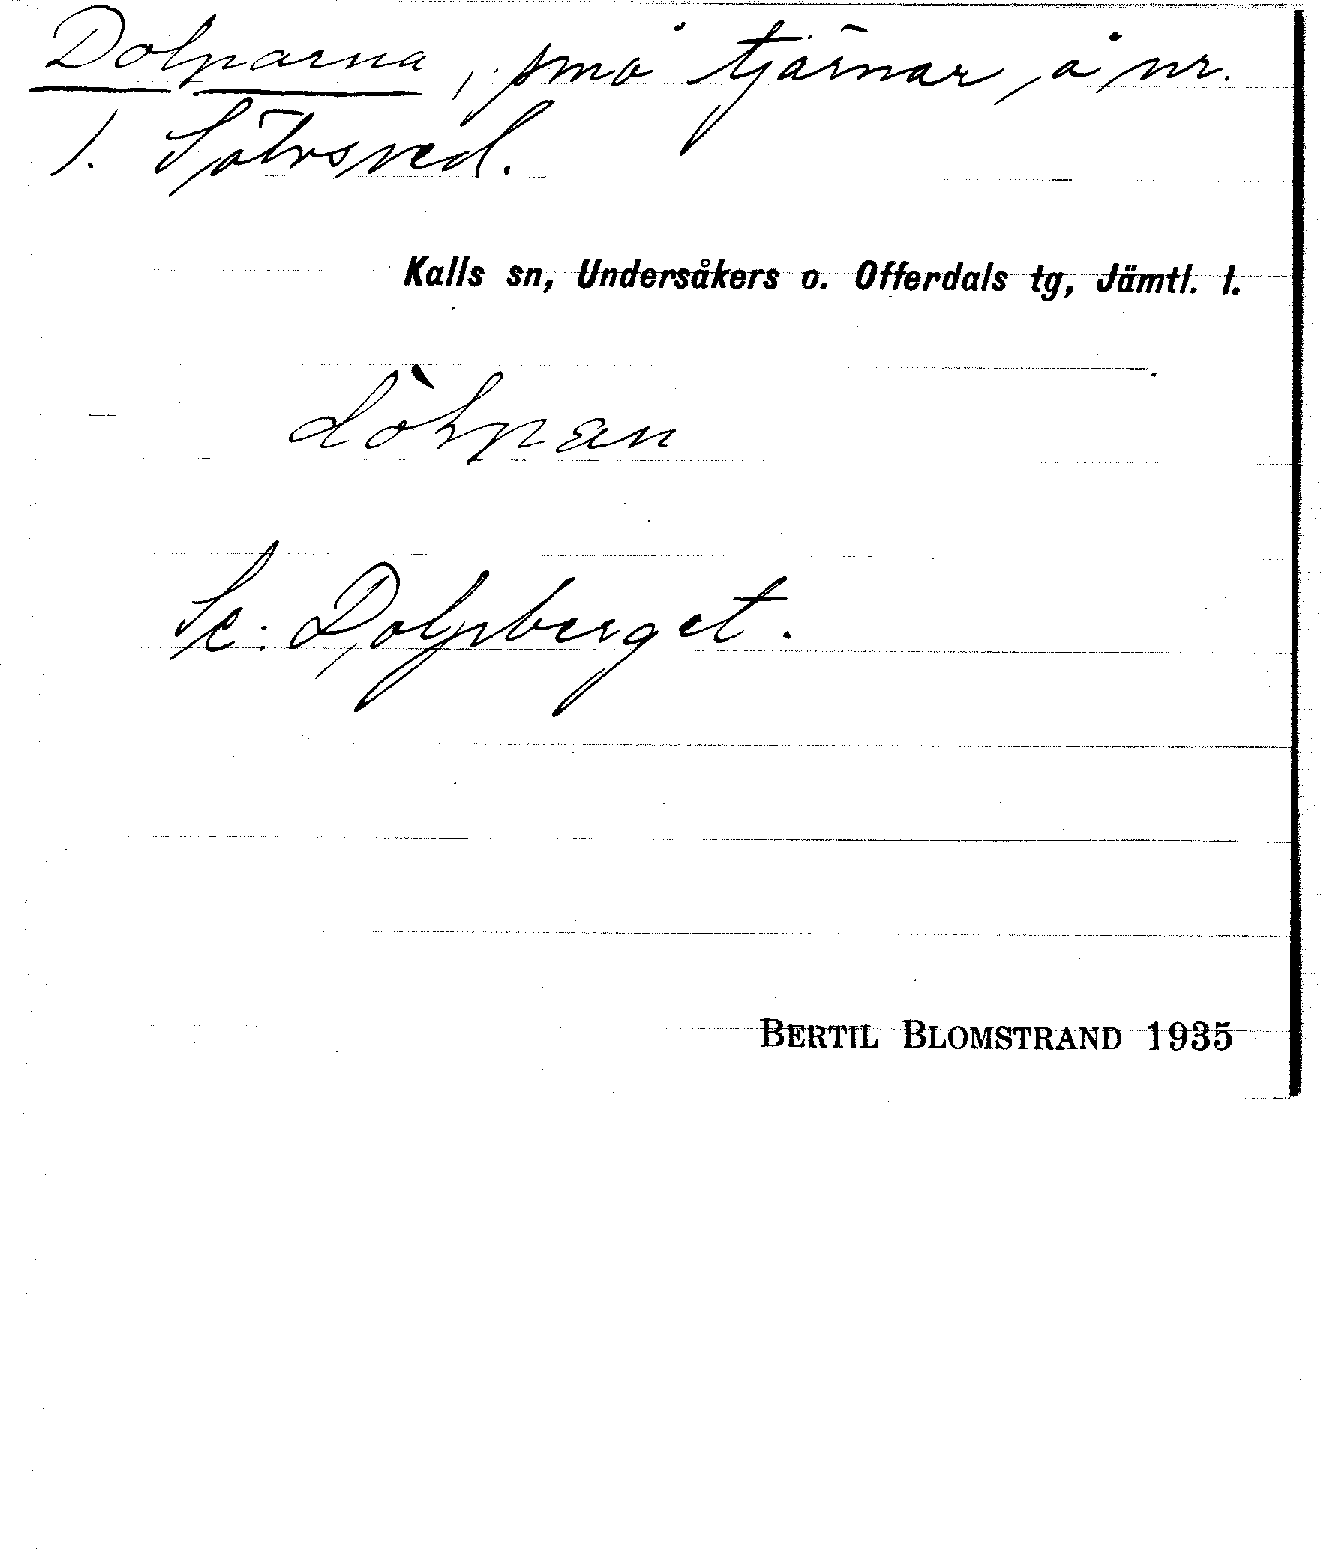 Dolparna, små tjärnar å nr.
1. Sölvsved.
Kalls sn, Undersåkers o. Offerdals tg, Jämtl. l.
Se. Dolpberget.
BERTIL BLOMSTRAND 1935